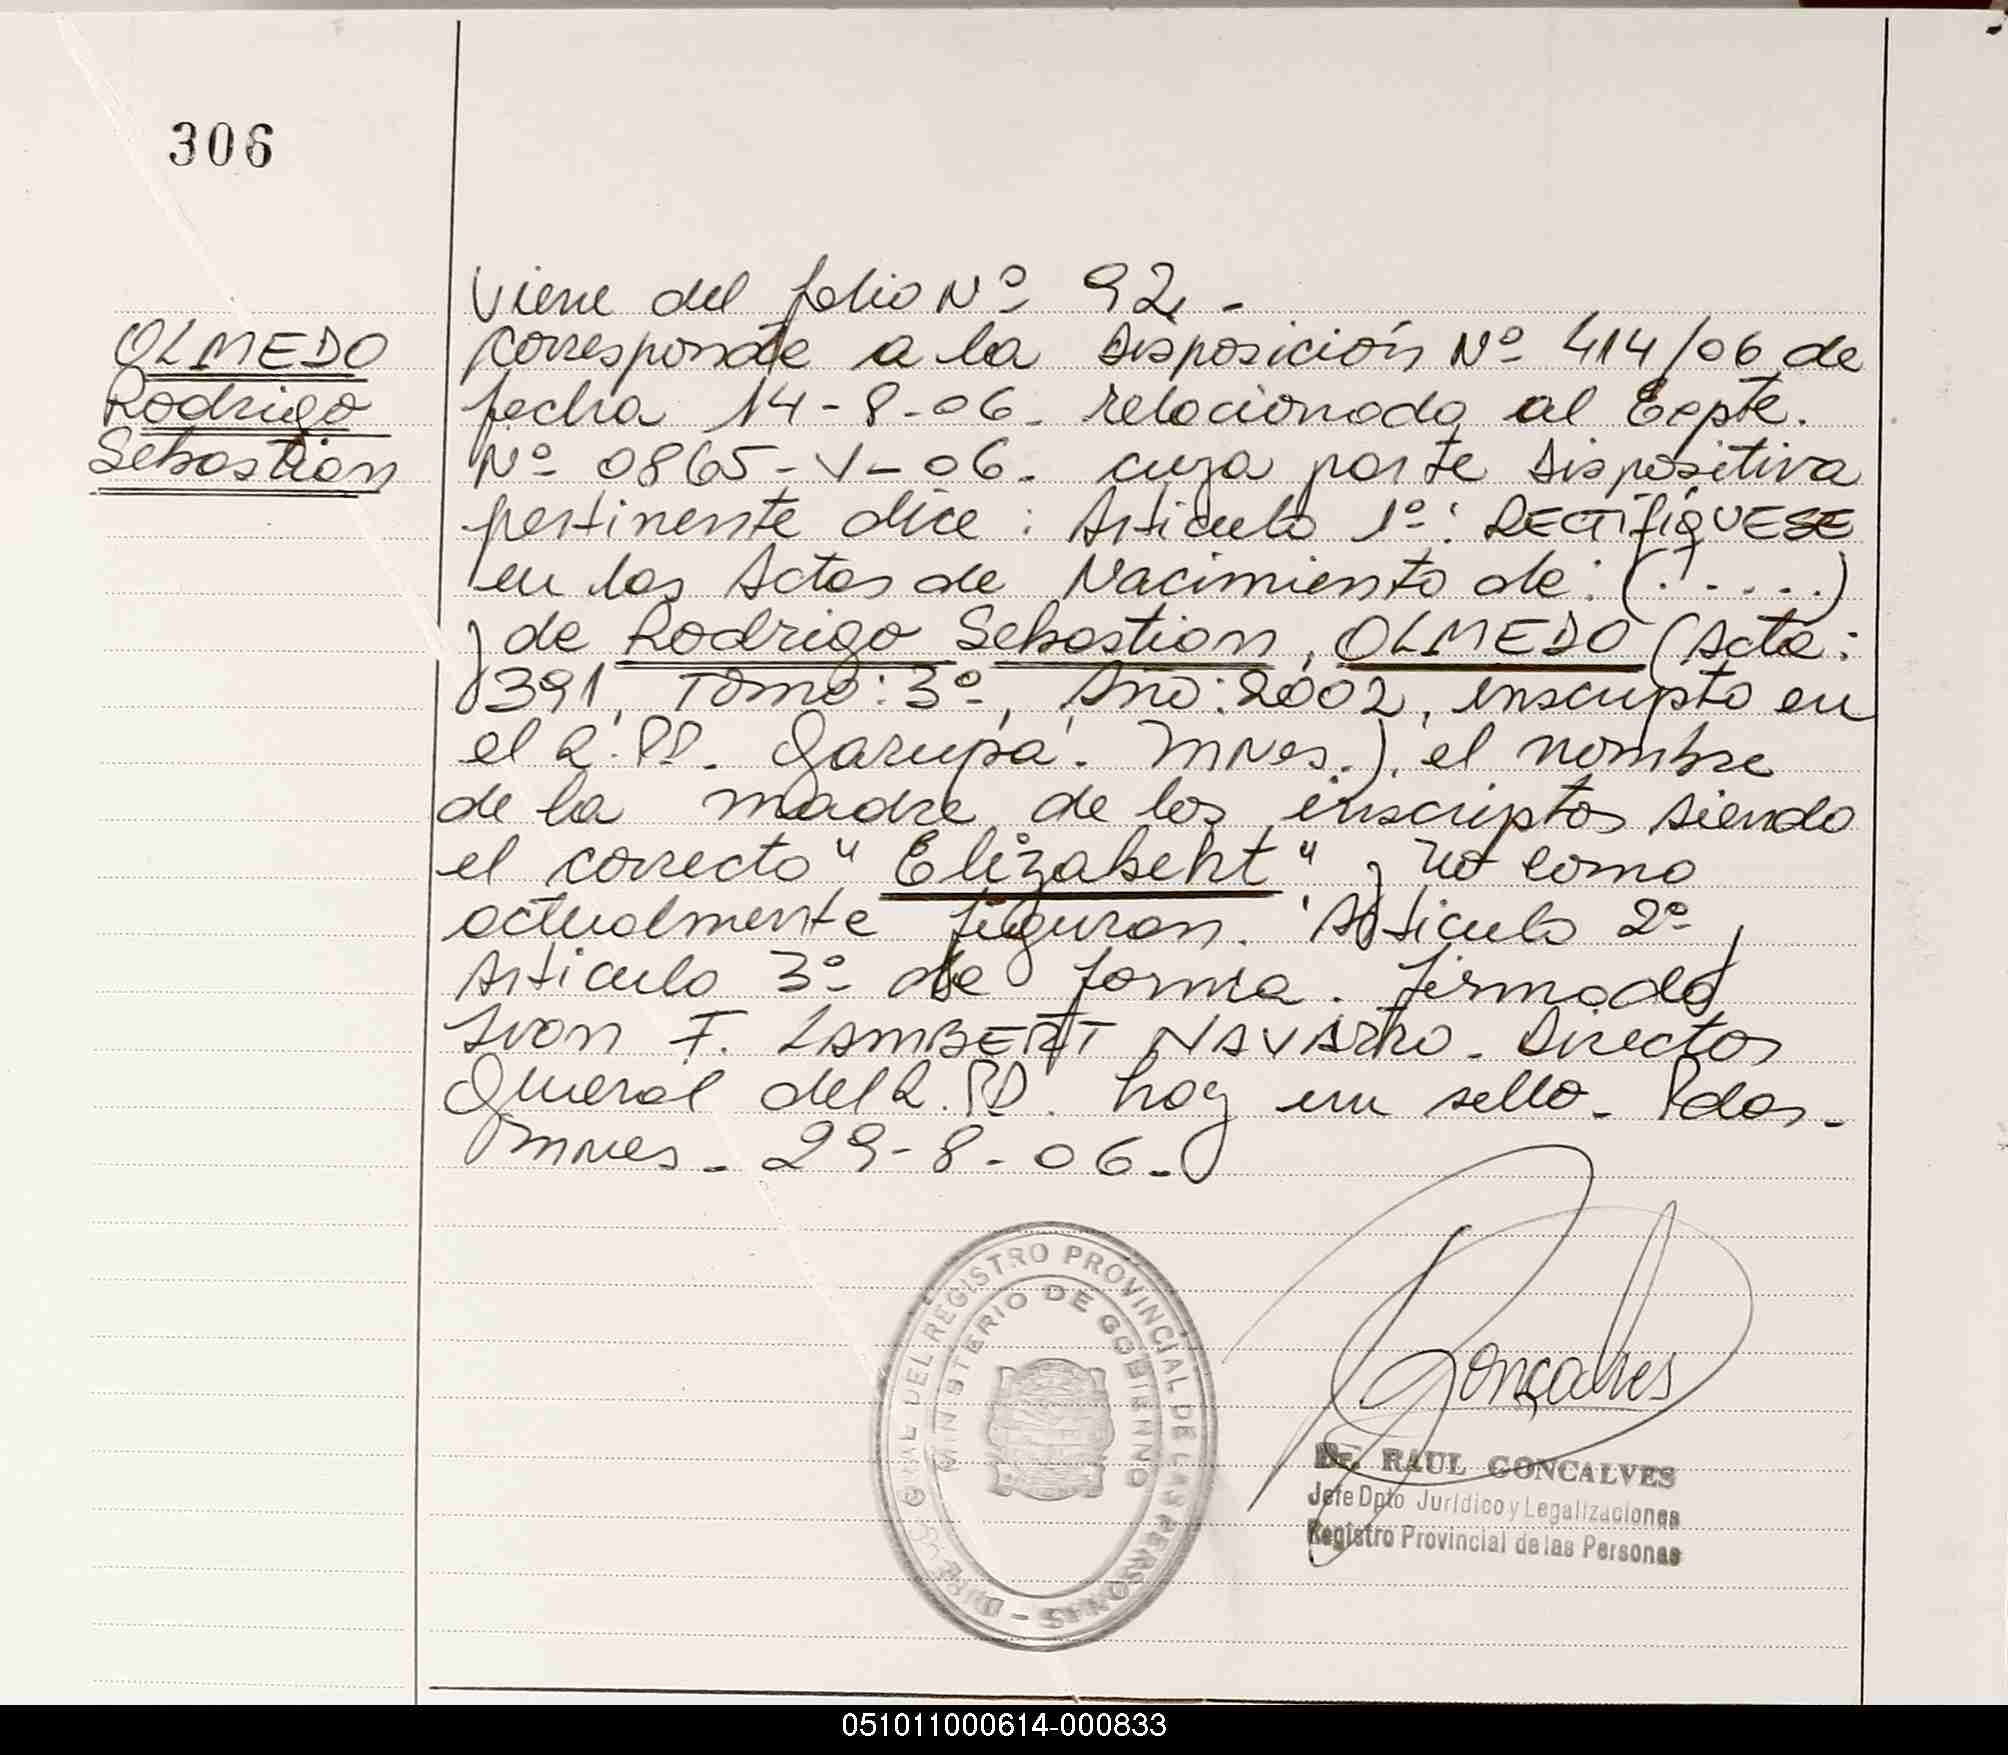 306
OLMEDO
Rodrigo
Sebastian
Viene del folio Nº 92.-
Corresponde a la Disposición Nº 414/06 de
fecha 14-8-06. relacionada al Expte.
Nº 0865-V-06. cuya parte Dispositiva
pertinente dice: Articulo 1º: RECTIFIQUESE
en las Actas de Nacimiento de: (.....)
y de Rodrigo Sebastian, OLMEDO (Acta:
391, Tomo: 3º, Año: 2002, inscripto en
el R.PP. Garupá. Mnes.), el nombre
de la madre de los inscriptos siendo
el correcto "Elizabeht" y no como
actualmente figuran. Articulo 2º y
Articulo 3º de forma. firmado
Ivan F. LAMBERT NAVARRO. Director
General del R.PP. hay un sello. Pdas.
Mnes. 29-8-06.-
DIREC. GRAL DEL REGISTRO PROVINCIAL DE LAS PERSONAS -
MINISTERIO DE GOBIERNO
Goncalves
Dr. RAUL GONCALVES
Jefe Dpto Jurídico y Legalizaciones
Registro Provincial de las Personas
051011000614-000833